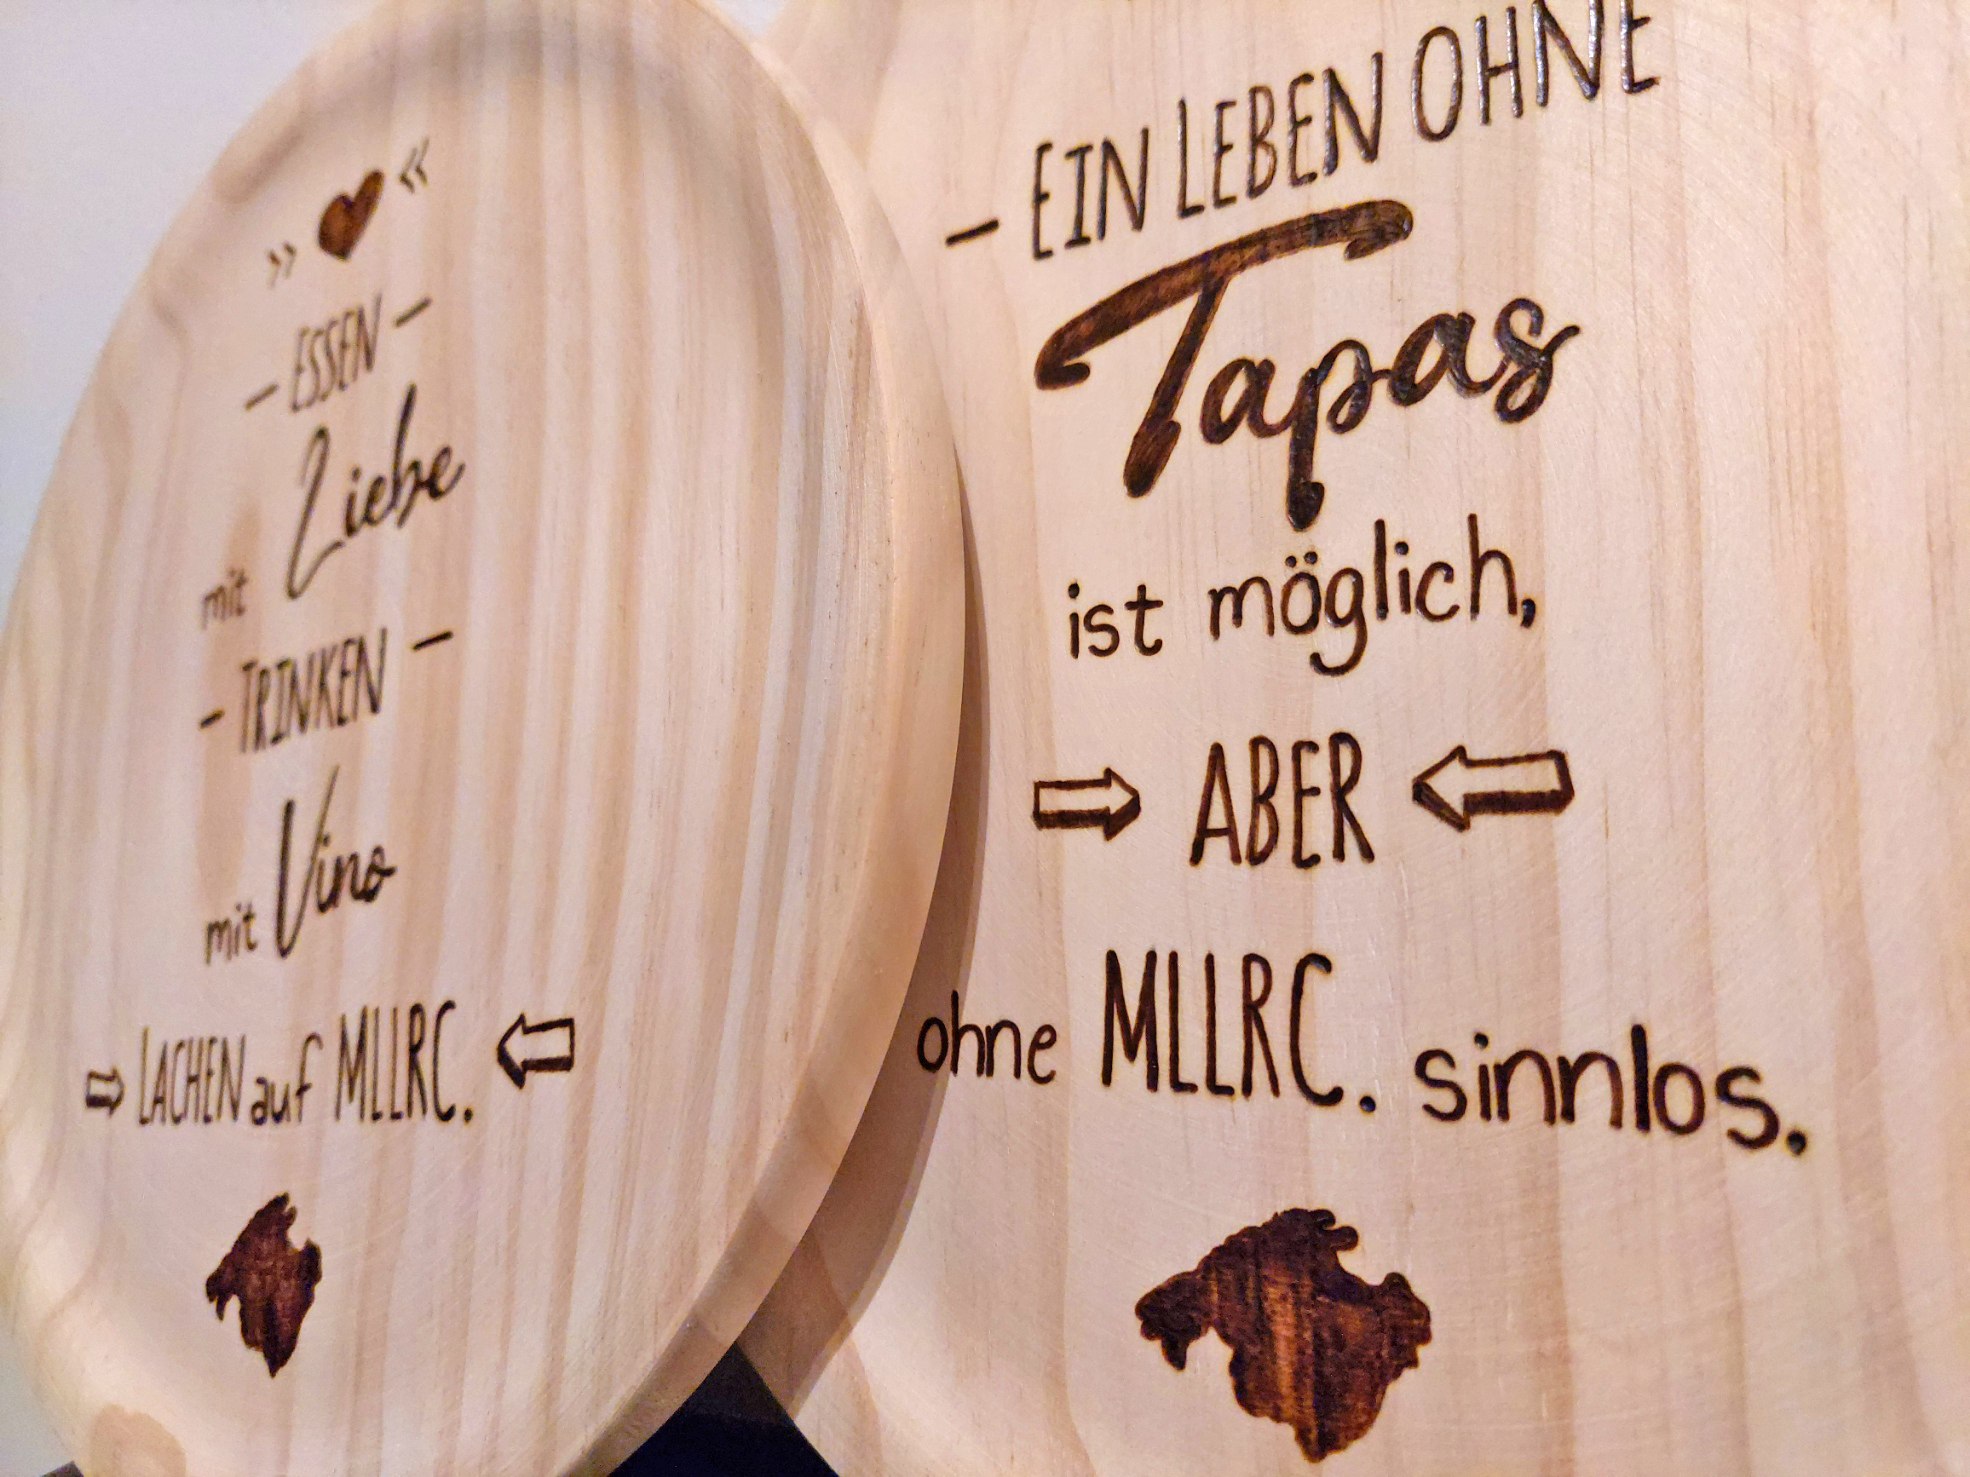 » ♥ «
– ESSEN –
mit Liebe
– TRINKEN –
mit Vino
⇨ LACHEN auf MLLRC. ⇦
– EIN LEBEN OHNE
Tapas
ist möglich,
⇨ ABER ⇦
ohne MLLRC. sinnlos.